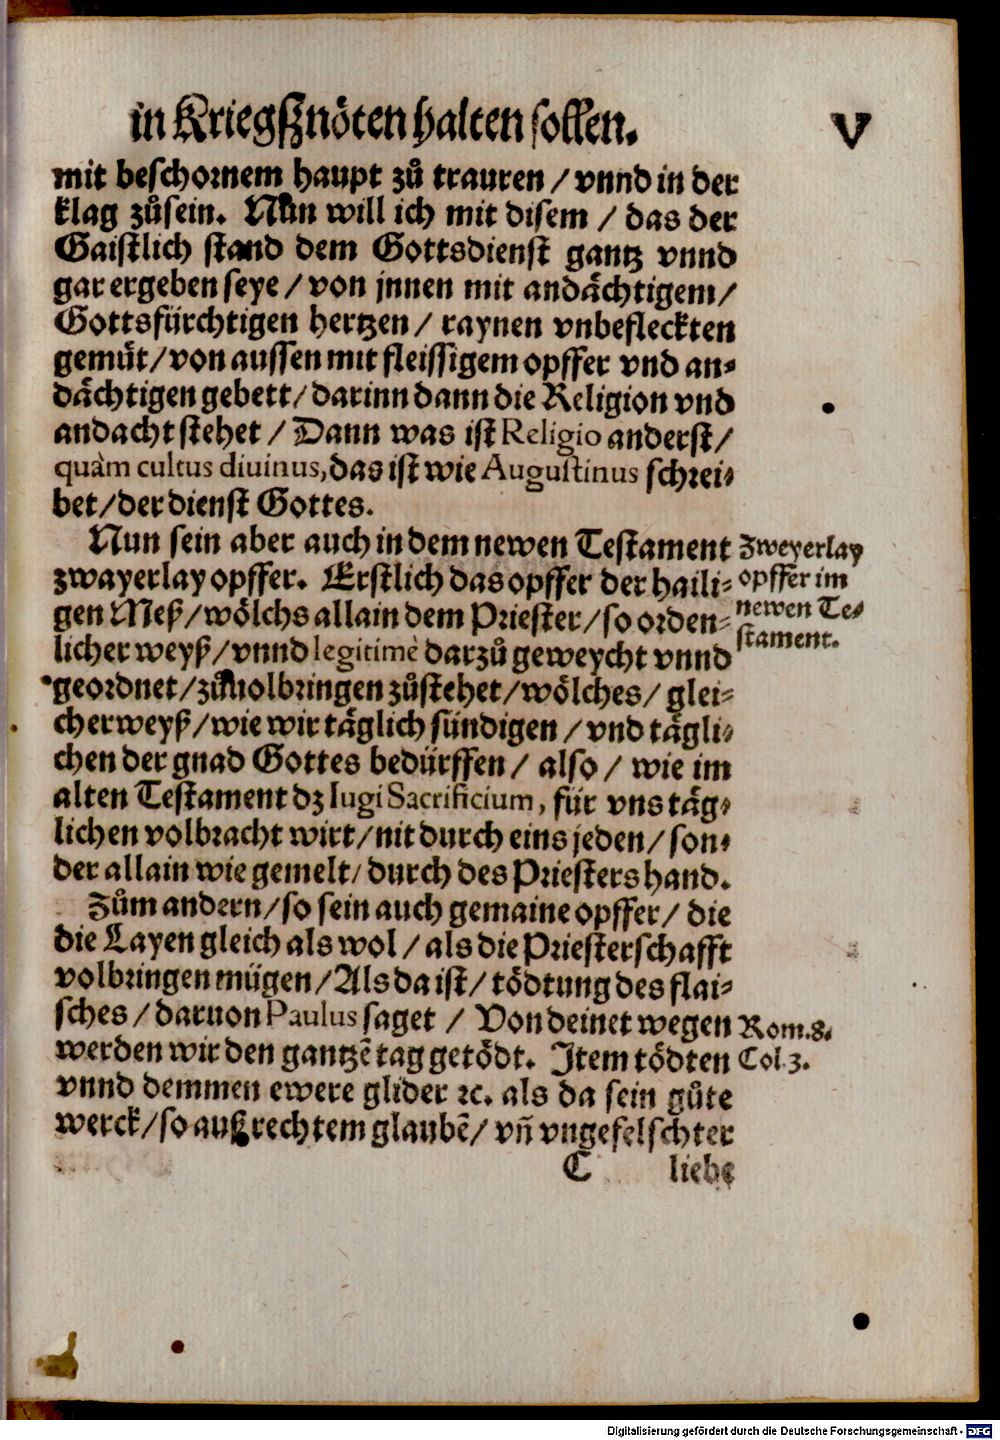 in Kriegßnöten halten sollen. V
mit beschornem haupt zů trauren / vnnd in der
klag zůsein. Nůn will ich mit disem / das der
Gaistlich stand dem Gottsdienst gantz vnnd
gar ergeben seye / von jnnen mit andächtigem /
Gottsfürchtigen hertzen / raynen vnbefleckten
gemüt / von aussen mit fleissigem opffer vnd an-
dächtigen gebett / darinn dann die Religion vnd
andacht stehet / Dann was ist Religio anderst /
quàm cultus diuinus, das ist wie Augustinus schrei-
bet / der dienst Gottes.
Nun sein aber auch in dem newen Testament
zwayerlay opffer. Erstlich das opffer der haili-
gen Meß / wölchs allain dem Priester / so orden-
licher weyß / vnnd legitimè darzů geweycht vnnd
geordnet / zůuolbringen zůstehet / wölches / glei-
cher weyß / wie wir täglich sündigen / vnd tägli-
chen der gnad Gottes bedürffen / also / wie im
alten Testament dz Iugi Sacrificium, für vns täg-
lichen volbracht wirt / nit durch eins jeden / son-
der allain wie gemelt / durch des Priesters hand.
Zům andern / so sein auch gemaine opffer / die
die Layen gleich als wol / als die Priesterschafft
volbringen mügen / Als da ist / tödtung des flai-
sches / daruon Paulus saget / Von deinet wegen
werden wir den gantzē tag getödt. Item tödten
vnnd demmen ewere glider ꝛc. als da sein gůte
werck / so auß rechtem glaubē / vn̄ vngefelschter
C liebe
Zweyerlay
opffer im
newen Te-
stament.
Rom.8.
Col.3.
Digitalisierung gefördert durch die Deutsche Forschungsgemeinschaft - DFG